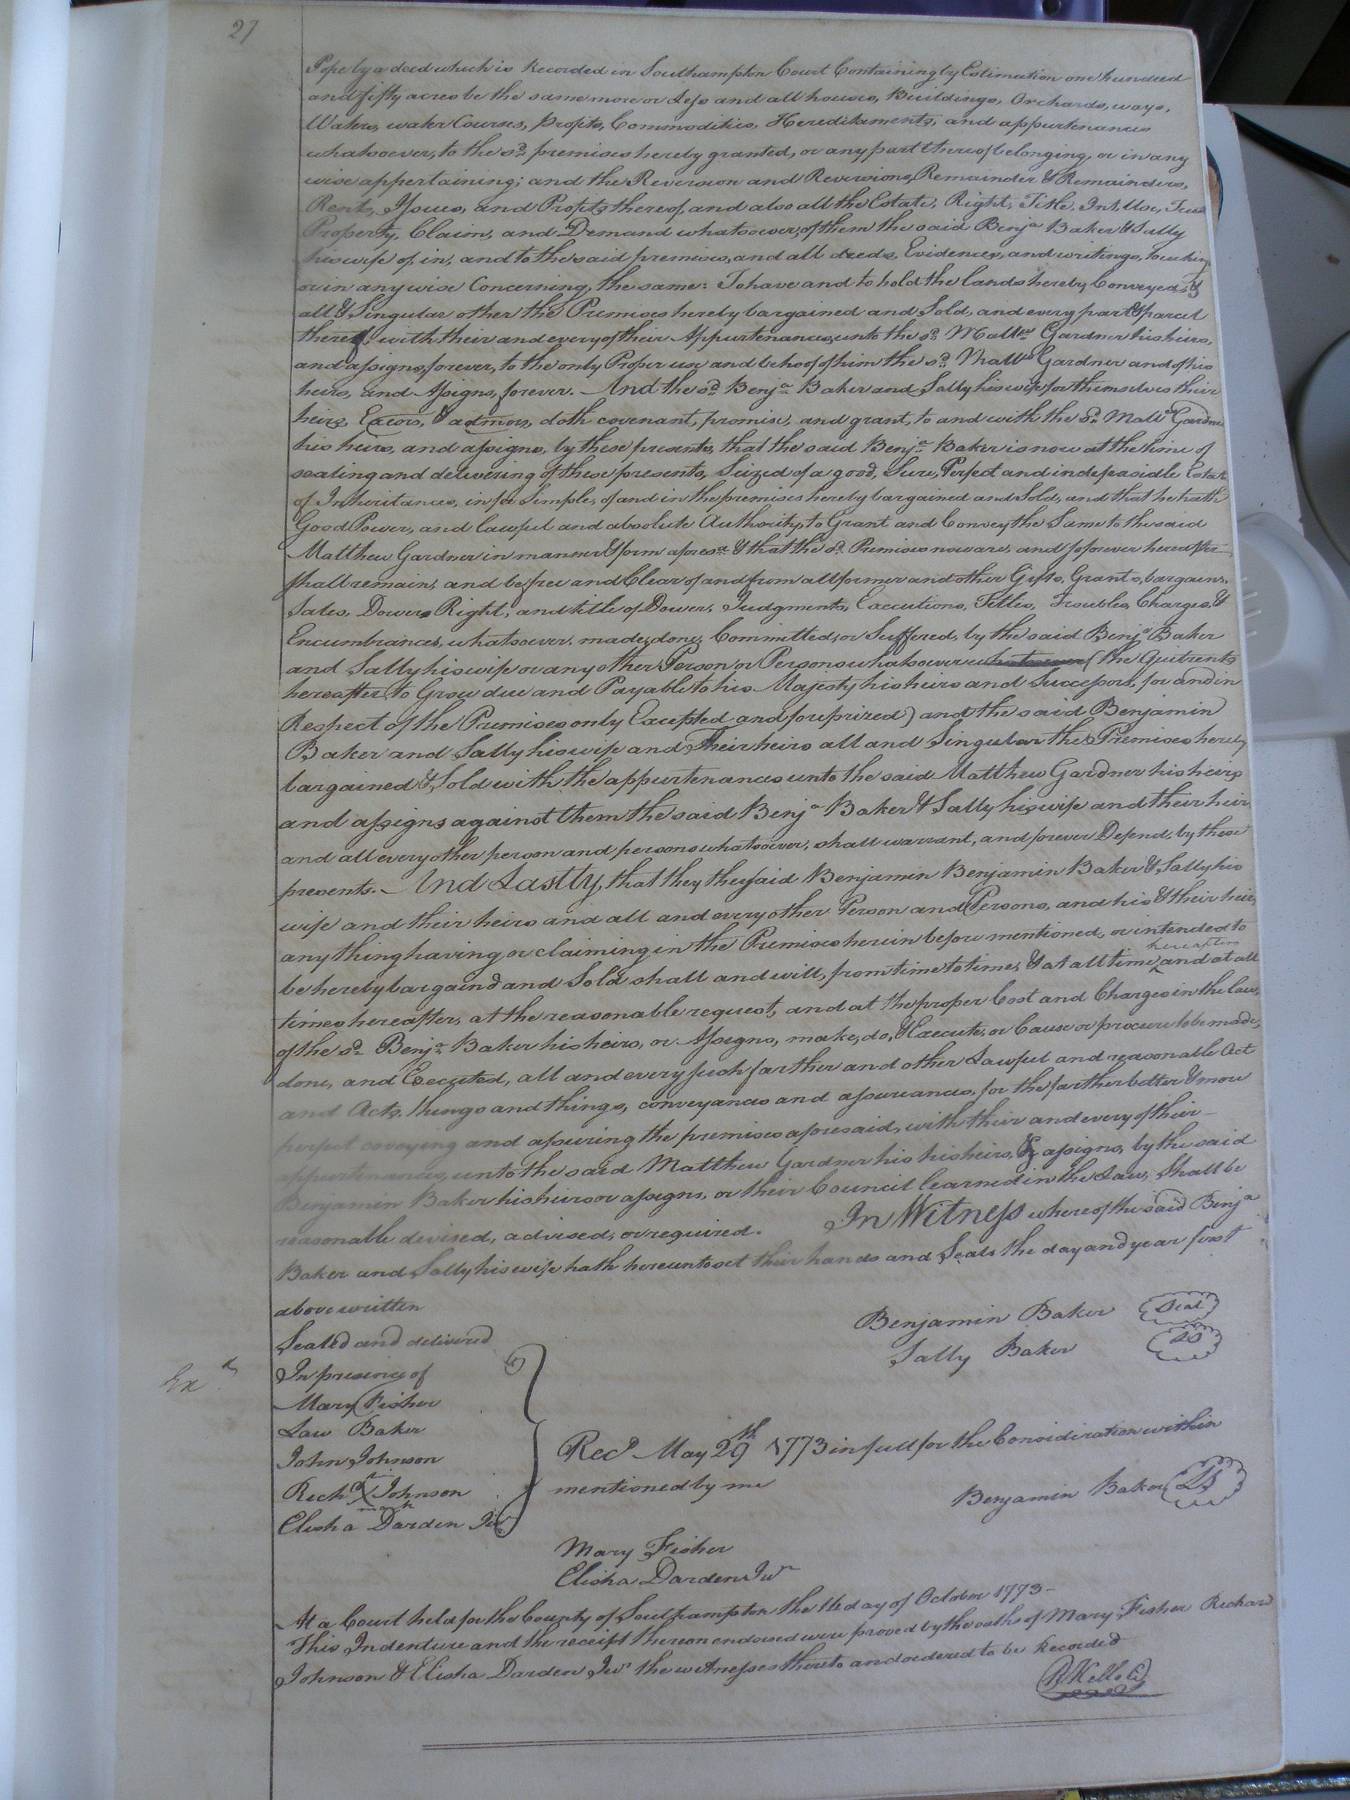 27
Pope by a deed which is Recorded in Southampton Court Containing by Estimation one hundred
and fifty acres be the same more or Less and all houses, Buildings, Orchards, ways,
Waters, water Courses, Profits, Commodities, Hereditaments, and appurtenances
whatsoever, to the sd. premises hereby granted, or any part thereof belonging, or in any
wise appertaining; and the Reversion and Reversions, Remainder & Remainders,
Rents, Issues, and Profits thereof, and also all the Estate, Right, Title, Int, Use, Trust
Property, Claim, and Demand whatsoever, of them the said Benja Baker & Sally
his wife of, in, and to the said premises, and all deeds, Evidences, and writings, touching
or in any wise Concerning, the same: To have and to hold the lands hereby Conveyed &
all & Singular other the Premises hereby bargained and Sold, and every part & parcel
thereof with their and every of their Appurtenances, unto the sd. Mattw Gardner his heirs,
and assigns, forever, to the only Proper use and behoof of him the sd. Mattw Gardner and of his
heirs, and Assigns, forever. And the sd. Benja Baker and Sally his wife for themselves their
heirs, Excors, & admors, doth covenant, promise, and grant, to and with the sd. Mattw Gardner
his heirs, and assigns, by these presents, that the said Benja Baker is now at the time of
sealing and delivering of these presents, Seized of a good, Sure, Perfect and indefeasible Estate
of Inheritance, in fee Simple, of and in the premises hereby bargained and Sold, and that he hath
Good Power, and Lawful and absolute Authority, to Grant and Convey the Same to the said
Matthew Gardner in manner & form aforesd & that the sd. Premises now are, and so forever hereafter
shall remain, and be, free and Clear of and from all former and other Gifts, Grants, bargains,
Sales, Dower, Right, and title of Dower, Judgments, Executions, Titles, Troubles, Charges, &
Encumbrances, whatsoever, made, done, Committed, or Suffered, by the said Benja Baker
and Sally his wife or any other Person or Persons whatsoever whatsoever (the Quitrents
hereafter to Grow due and Payable to his Majesty his heirs and Successors, for and in
Respect of the Premises only Excepted and foreprized) and the said Benjamin
Baker and Sally his wife and Their heirs all and Singular the Premises hereby
bargained & Sold with the appurtenances unto the said Matthew Gardner his heirs
and assigns against them the said Benja Baker & Sally his wife and their heirs
and all every other person and persons whatsoever, shall warrant, and forever Defend, by these
presents. And Lastly, that they the said Benjamin Benjamin Baker & Sally his
wife and their heirs and all and every other Person and Persons, and his & their heirs,
any thing having or claiming in the Premises herein before mentioned, or intended to
be hereby bargaind and Sold shall and will, from time to time, & at all time hereafter and at all
times hereafter, at the reasonable request, and at the proper Cost and Charges in the law,
of the sd. Benja Baker his heirs, or Assigns, make, do, & Execute, or Cause or procure to be made,
done, and Executed, all and every such farther and other Lawful and reasonable Act
and Acts, things and things, conveyances and assurances, for the farther better & more
perfect coveying and assuring the premises aforesaid, with their and every of their
appurtenances, unto the said Matthew Gardner his his heirs, & assigns, by the said
Benjamin Baker his heirs or assigns, or their Council learned in the Law, Shall be
reasonable devised, advised, or required. In Witness whereof the said Benja
Baker and Sally his wife hath hereunto set their hands and Seals the day and year first
above written
Benjamin Baker Seal
Sally Baker
Sealed and delivered
In presence of
Exd
Mary Fisher
Law Baker
John Johnson
Richd X Johnson
mark
Elisha Darden Junr
Recd May 29th 1773 in full for the Consideration within
mentioned by me
Benjamin Baker LS
Mary Fisher
Elisha Darden Junr
At a Court held for the County of Southampton the 14 day of October 1773
This Indenture and the receipt thereon endorsed were proved by the oaths of Mary Fisher Richard
Johnson & Elisha Darden Junr the witnesses thereto and ordered to be Recorded